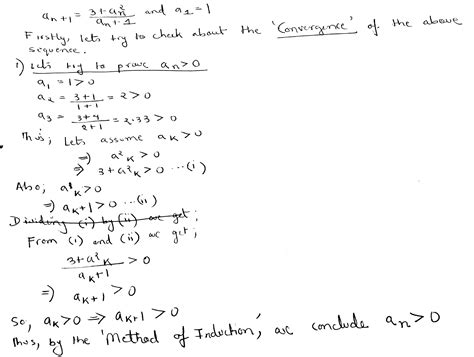 a_{n+1} = \frac{3+a_n^2}{a_n+1} and a_1 = 1
Firstly, lets try to check about the 'Convergence' of the above
sequence.
1) Lets try to prove a_n > 0
a_1 = 1 > 0
a_2 = \frac{3+1}{1+1} = 2 > 0
a_3 = \frac{3+4}{2+1} = 2.33 > 0
Thus; Lets assume a_K > 0
⇒ a^2_K > 0
⇒ 3 + a^2_K > 0 ...(i)
Also; a_K > 0
⇒ a_K + 1 > 0 ...(ii)
Dividing (i) by (ii) we get;
From (i) and (ii) we get;
\frac{3+a^2_K}{a_K+1} > 0
⇒ a_{K+1} > 0
So, a_K > 0 ⇒ a_{K+1} > 0
Thus, by the 'Method of Induction', we conclude a_n > 0